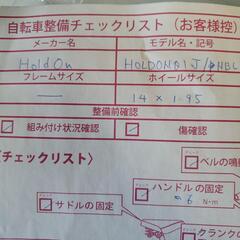 自転車整備チェックリスト（お客様控）
メーカー名 モデル名・記号
HoldOn HOLDONA1J/
フレームサイズ ホイールサイズ
— 14×1.95
整備前確認
組み付け状況確認 傷確認
〈チェックリスト〉
ベルの鳴
ハンドルの固定
6 N・m
サドルの固定
クランクの